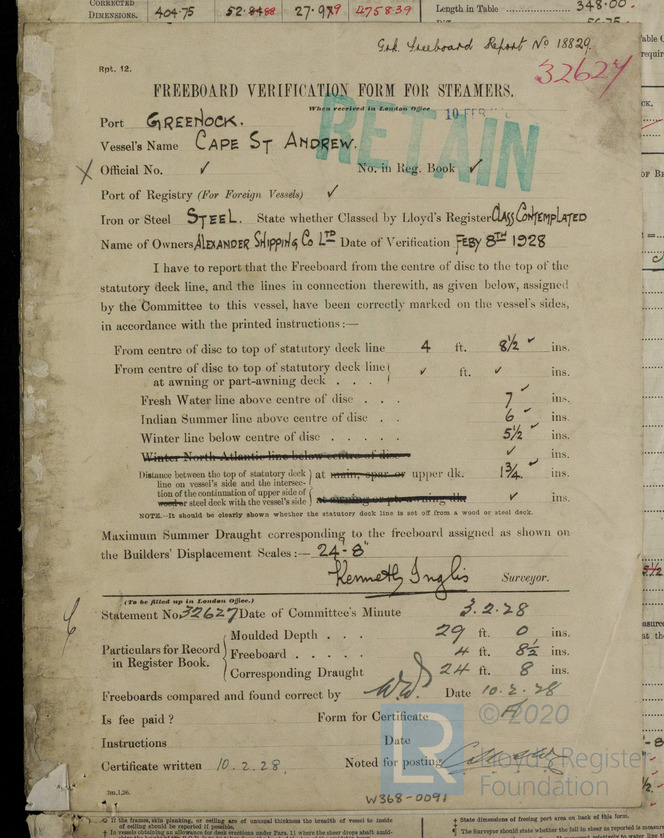 CORRECTED
DIMENSIONS. 404·75 27·9 475839 Length in Table 348·00
Grk. Freeboard Report No 18829.
Rpt. 12.
32627
FREEBOARD VERIFICATION FORM FOR STEAMERS.
When received in London Office 10 FEB
RETAIN
Port GREENOCK.
Vessel's Name CAPE ST ANDREW.
X Official No. ✓ No. in Reg. Book ✓
Port of Registry (For Foreign Vessels) ✓
Iron or Steel STEEL. State whether Classed by Lloyd's Register CLASS CONTEMPLATED
Name of Owners ALEXANDER SHIPPING CO LTD Date of Verification FEBY 8TH 1928
I have to report that the Freeboard from the centre of disc to the top of the
statutory deck line, and the lines in connection therewith, as given below, assigned
by the Committee to this vessel, have been correctly marked on the vessel's sides,
in accordance with the printed instructions:—
From centre of disc to top of statutory deck line 4 ft. 8½ ✓ ins.
From centre of disc to top of statutory deck line
at awning or part-awning deck . . . ✓ ft. ✓ ins.
Fresh Water line above centre of disc . . . 7 ✓ ins.
Indian Summer line above centre of disc . . 6 ✓ ins.
Winter line below centre of disc . . . . . 5½ ✓ ins.
Winter North Atlantic line below centre of disc ✓ ins.
Distance between the top of statutory deck
line on vessel's side and the intersec-
tion of the continuation of upper side of
wood or steel deck with the vessel's side
at main, spar or upper dk. 1¾ ✓ ins.
at awning or pt. awning dk. ✓ ins.
NOTE.—It should be clearly shown whether the statutory deck line is set off from a wood or steel deck.
Maximum Summer Draught corresponding to the freeboard assigned as shown on
the Builders' Displacement Scales :— 24'-8"
Kenneth Inglis Surveyor.
(To be filled up in London Office.)
Statement No. 32627 Date of Committee's Minute 3.2.28
Particulars for Record
in Register Book.
Moulded Depth . . . 29 ft. 0 ins.
Freeboard . . . . . 4 ft. 8½ ins.
Corresponding Draught 24 ft. 8 ins.
Freeboards compared and found correct by Date 10.2.28
Is fee paid ? Form for Certificate A
Instructions Date
Certificate written 10.2.28. Noted for posting
3m,1,26.
© 2020
LR
Lloyd's Register
Foundation
W368-0091
If the frames, skin planking, or ceiling are of unusual thickness the breadth of vessel to inside
of ceiling should be reported if possible.
State dimensions of freeing port area on back of this form.